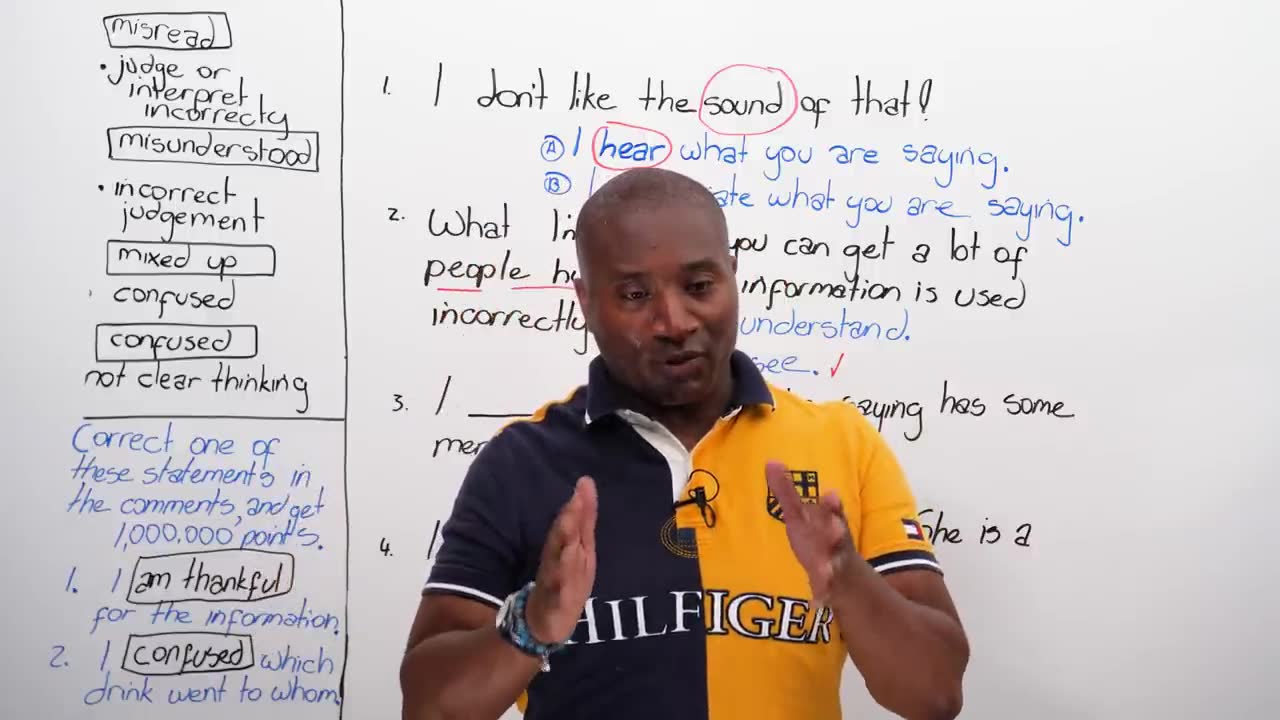 misread
• judge or
interpret
incorrecty
misunderstood
• incorrect
judgement
mixed up
confused
confused
not clear thinking
Correct one of
these statements in
the comments, and get
1,000,000 points.
1. I am thankful
for the information.
2. I confused which
drink went to whom.
1. I don't like the sound of that!
A I hear what you are saying.
B I what you are saying.
2. What you can get a lot of
people information is used
incorrectly understand.
see. ✓
3. I ____ saying has some
4. I She is a
HILFIGER